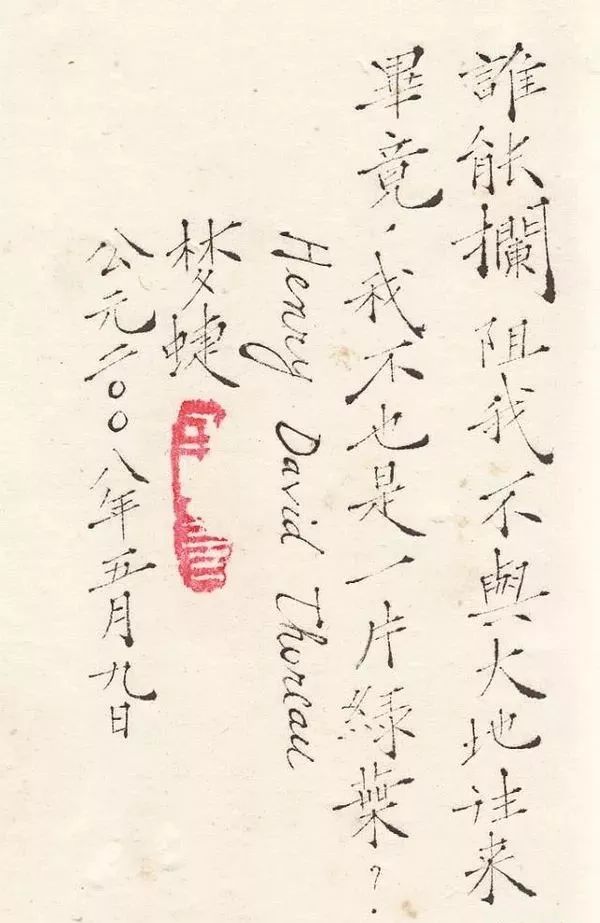 誰能攔阻我不與大地往来
畢竟，我不也是一片綠葉？
Henry David Thoreau
梦蜨
公元二00八年五月九日